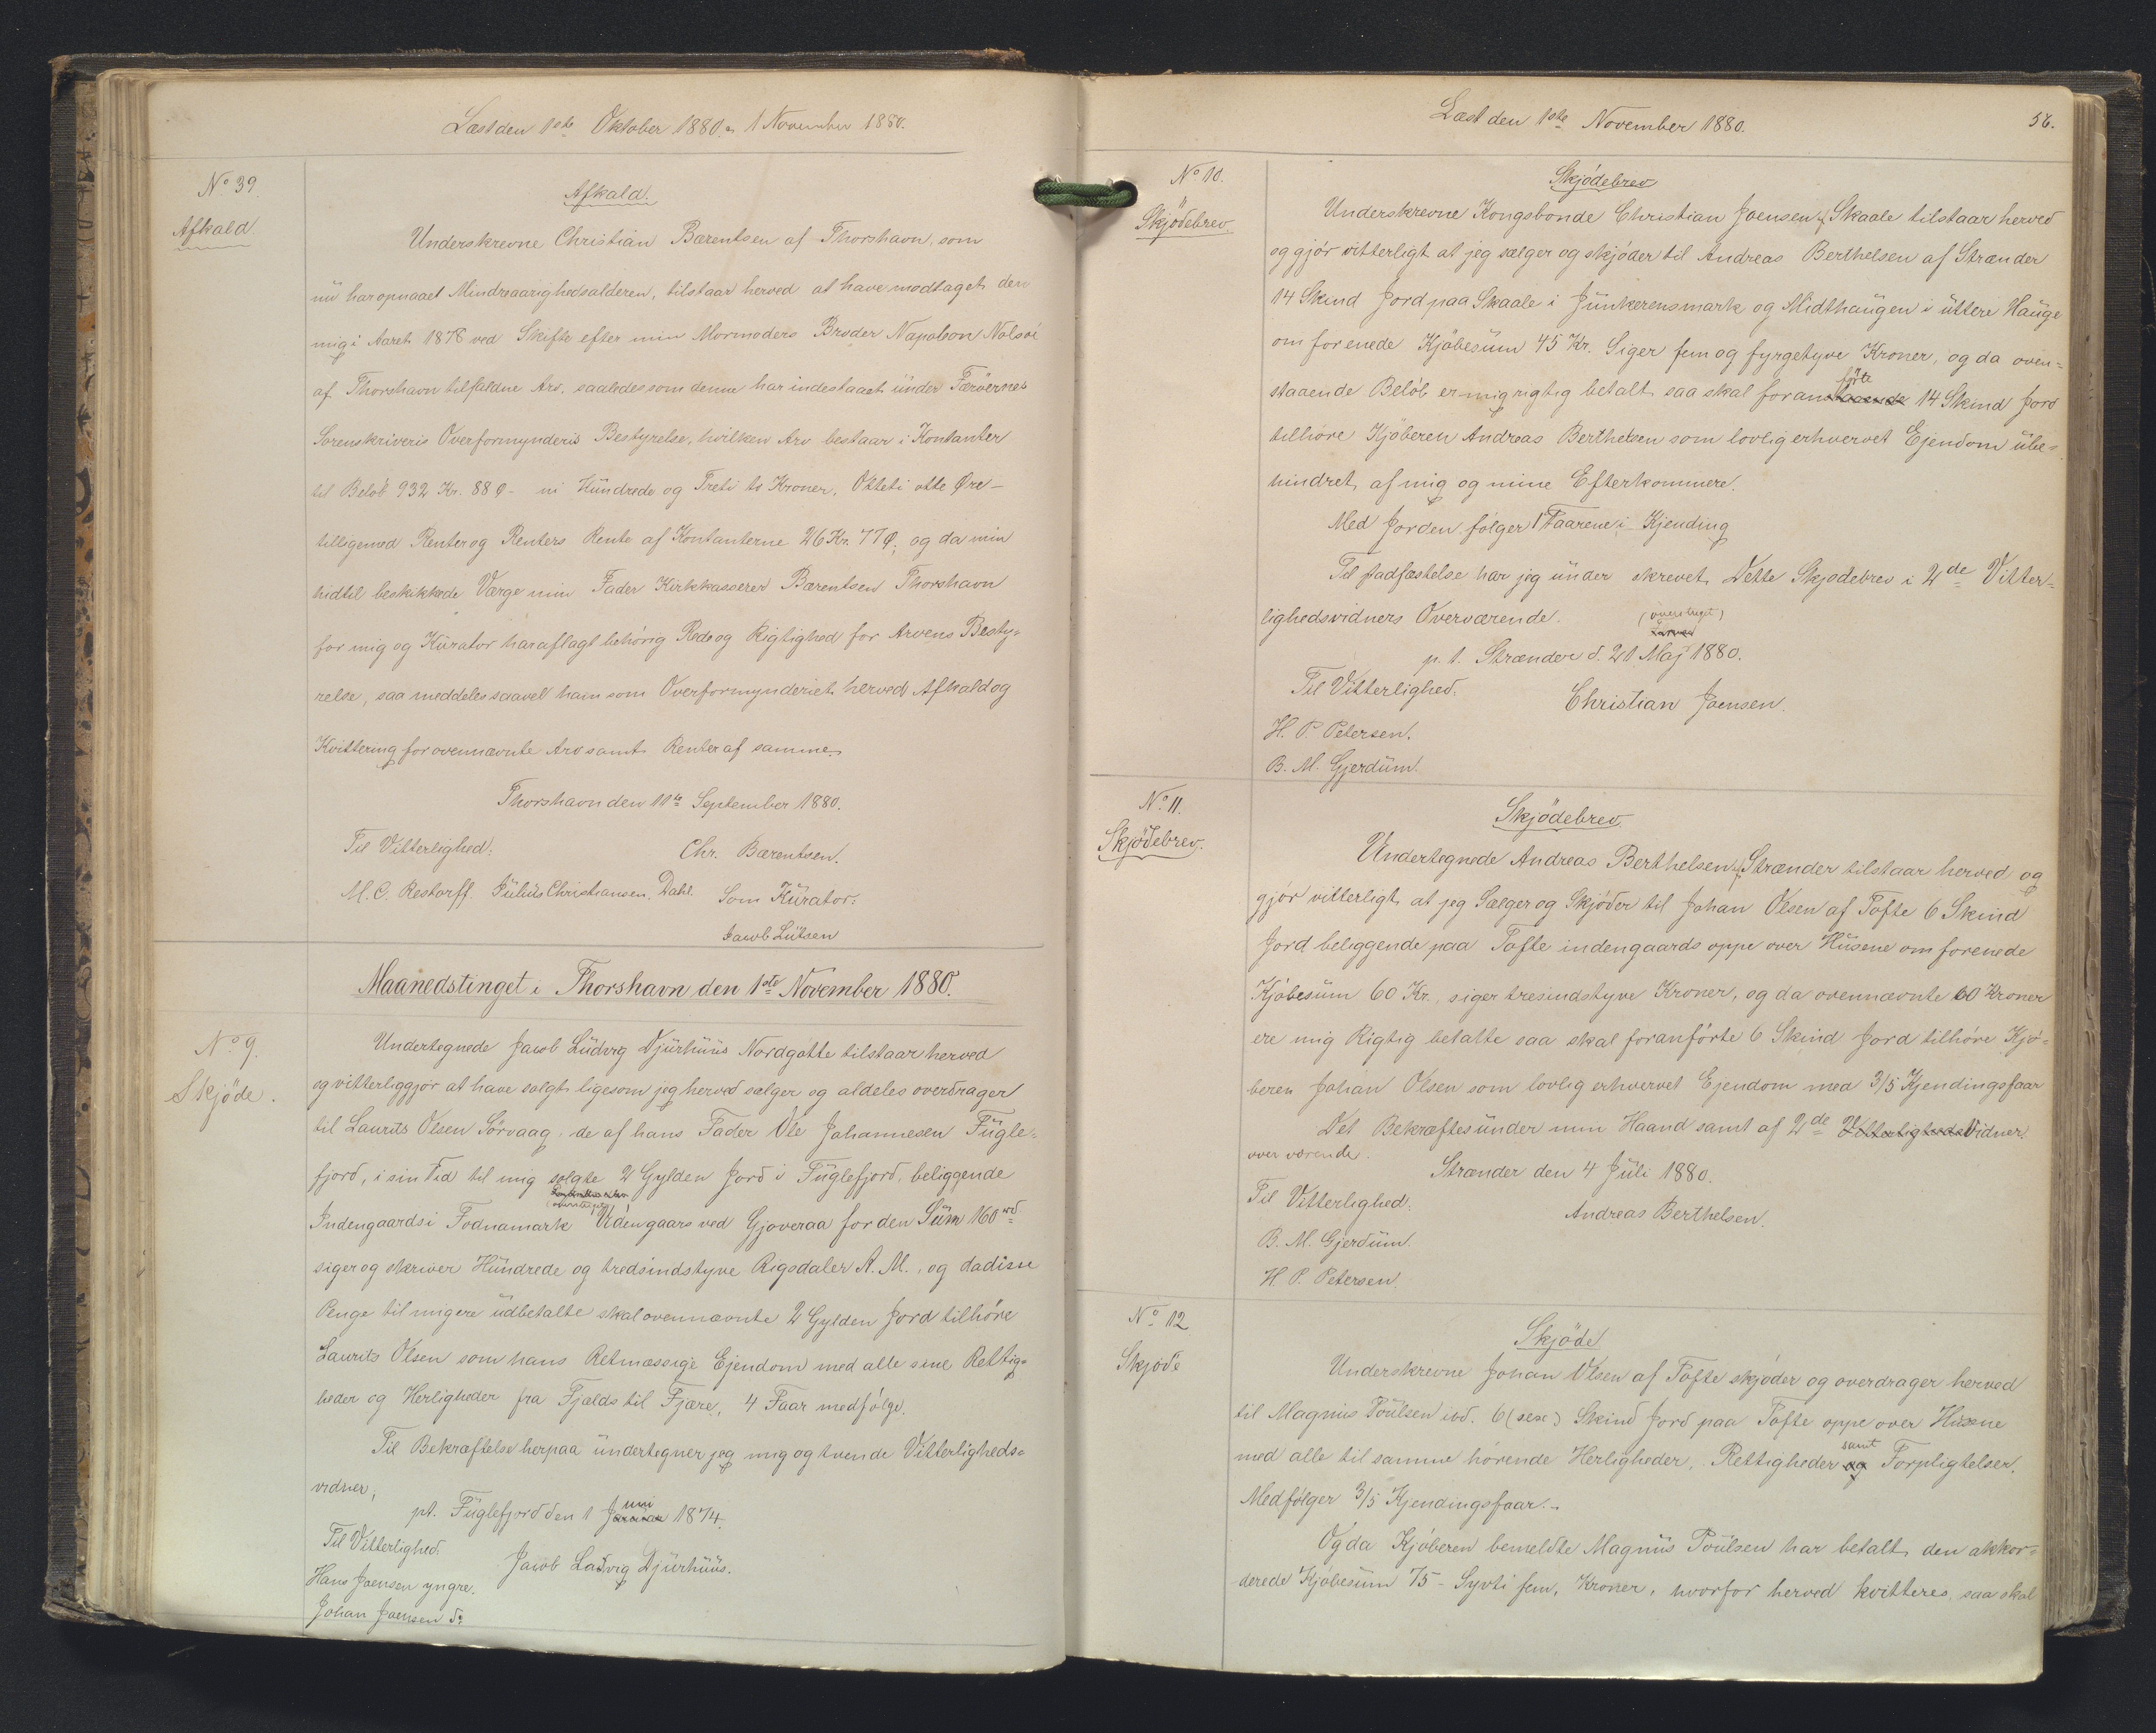 Læst den 1ste Oktober 1880. & 1 November 1880.
No 39.
Afkald
Afkald.
Underskrevne Christian Bærentsen af Thorshavn, som
nu har opnaaet Mindreaarighedsalderen, tilstaar herved at have modtaget den
mig i Aaret 1878 ved Skifte efter min Mormoders Broder Napoleon Nolsøe
af Thorshavn tilfaldne Arv, saaledes som denne har indestaaet under Færøernes
Sorenskriveris Overformynderis Bestyrelse, hvilken Arv bestaar i Kontanter
til Beløb 932 Kr. 88 Ø - ni Hundrede og Treti to Kroner, Otteti otte Øre -
tilligemed Renter og Renters Rente af Kontanterne 26 Kr. 77 Ø; og da min
hidtil beskikkede Værge min Fader Kirkkasserer Bærentsen Thorshavn
for mig og Kurator har aflagt behørig Rede og Rigtighed for Arvens Besty-
relse, saa meddeles saavel ham som Overformynderiet herved Afkald og
Kvittering for ovennævnte Arv samt Renter af samme.
Thorshavn den 11te September 1880.
Til Vitterlighed.
Chr. Bærentsen.
M. C. Restorff. Julius Christiansen. Dahl.
Som Kurator:
Jacob Lützen
Maanedstinget i Thorshavn den 1ste November 1880.
No 9.
Skjøde.
Undertegnede Jacob Ludvig Djurhuus Nordgøtte tilstaar herved
og vitterliggjør at have solgt ligesom jeg herved sælger og aldeles overdrager
til Laurits Olsen Sørvaag, de af hans Fader Ole Johannesen Fugle-
fjord, i sin Tid til mig solgte 2 Gylden Jord i Fuglefjord, beliggende
(overstreget)
Indengaards i Todnamark Udengaars ved Gjoveraa for den Sum 160 rd
siger og skriver Hundrede og tredsindstyve Rigsdaler R. M., og da disse
Penge til mig ere udbetalte skal ovennævnte 2 Gylden Jord tilhøre
Laurits Olsen som hans Retmæssige Ejendom med alle sine Rettig-
heder og Herligheder fra Fjelds til Fjære, 4 Faar medfølge.
Til Bekræftelse herpaa undertegner jeg mig og tvende Vitterligheds-
vidner,
pt. Fuglefjord den 1 Juni 1874.
Til Vitterlighed.
Jacob Ludvig Djurhuus.
Hans Joensen yngre.
Johan Joensen do
Læst den 1ste November 1880.
56.
No 10.
Skjødebrev.
Skjødebrev
Underskrevne Kongsbonde Christian Joensen af Skaale tilstaar herved
og gjør vitterligt at jeg sælger og skjøder til Andreas Berthelsen af Strænder
14 Skind Jord paa Skaale i Junkerensmark og Midthaugen i uttere Hauge
om forenede Kjøbesum 45 Kr. Siger fem og fyrgetyve Kroner, og da oven-
staaende Beløb er mig rigtig betalt saa skal foranstaaende førte 14 Skind Jord
tilhøre Kjøberen Andreas Berthelsen som lovlig erhvervet Ejendom ube-
hindret, af mig og mine Efterkommere.
Med Jorden følger 1 Faarene i Kjending
Til Stadfæstelse har jeg under skrevet Dette Skjødebrev i 2de Vitter-
lighedsvidners Overværende.
(overstreget)
p. t. Strænder d. 21 Maj 1880.
Til Vitterlighed.
Christian Joensen.
H. P. Petersen.
B. M. Gjerdum.
No 11.
Skjødebrev.
Skjødebrev
Undertegnede Andreas Berthelsen af Strænder tilstaar herved og
gjør vitterligt, at jeg Sælger og Skjøder til Johan Olsen af Tofte 6 Skind
Jord beliggende paa Tofte indengaards oppe over Husene om forenede
Kjøbesum 60 Kr., siger tresindstyve Kroner, og da ovennævnte 60 Kroner
ere mig Rigtig betalte saa skal foranførte 6 Skind Jord tilhøre Kjø-
beren Johan Olsen som lovlig erhvervet Ejendom med 3/5 Kjendingsfaar
Det Bekræftes under min Haand samt af 2de Vitterligheds Vidner.
over værende.
Strænder den 4 Juli 1880.
Til Vitterlighed.
Andreas Berthelsen.
B. M. Gjerdum.
H. P. Petersen.
No 12
Skjøde
Skjøde
Underskrevne Johan Olsen af Tofte skjøder og overdrager herved
til Magnus Poulsen ibd. 6 (sex) Skind Jord paa Tofte oppe over Husene
med alle til samme hørende Herligheder, Rettigheder og samt Forpligtelser.
Medfølger 3/5 Kjendingsfaar.-
Og da Kjøberen bemeldte Magnus Poulsen har betalt den akkor-
derede Kjøbesum 75 - Syvti fem, Kroner, hvorfor herved kvitteres, saa skal